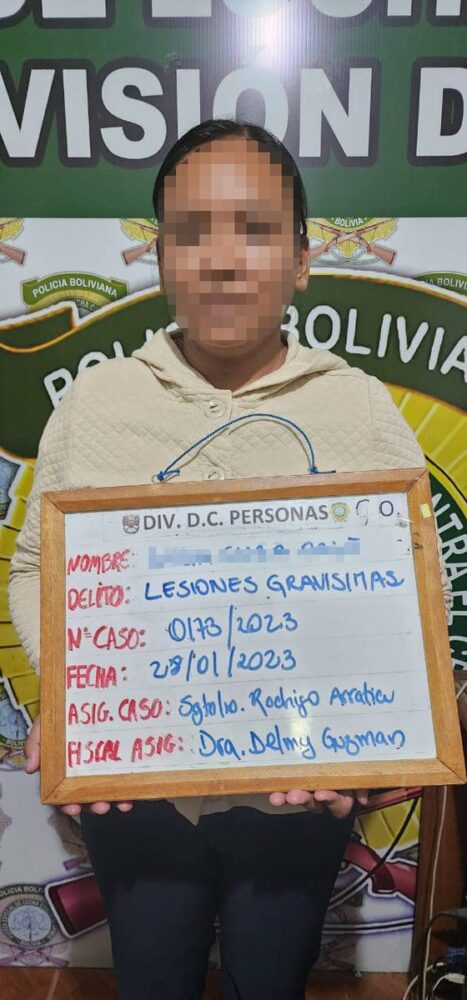 VISIÓN D
BOLIVIA
POLICIA BOLIVIANA
BOLIVIA
DIV. D.C. PERSONAS O.
NOMBRE:
DELITO: LESIONES GRAVISIMAS
N° CASO: 0173/2023
FECHA: 28/01/2023
ASIG. CASO: Sgto. Rodrigo Arratia
FISCAL ASIG: Dra. Delmy Guzman
POLICIA BOLIVIANA